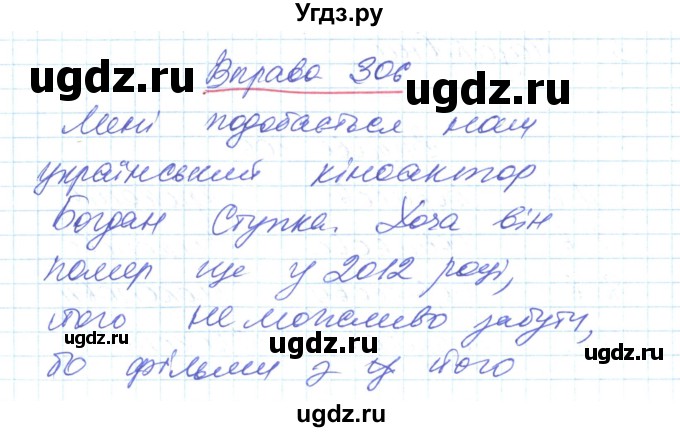 Угдз.ру
ugdz.ru ugdz.ru
Вправа 306
Мені подобається наш
ugdz.ru ugdz.ru
український кіноактор
Богдан Ступка. Хоча він
ugdz.ru ugdz.ru
помер ще у 2012 році,
його неможливо забути,
ugdz.ru ugdz.ru
бо фільми з його
ugdz.ru